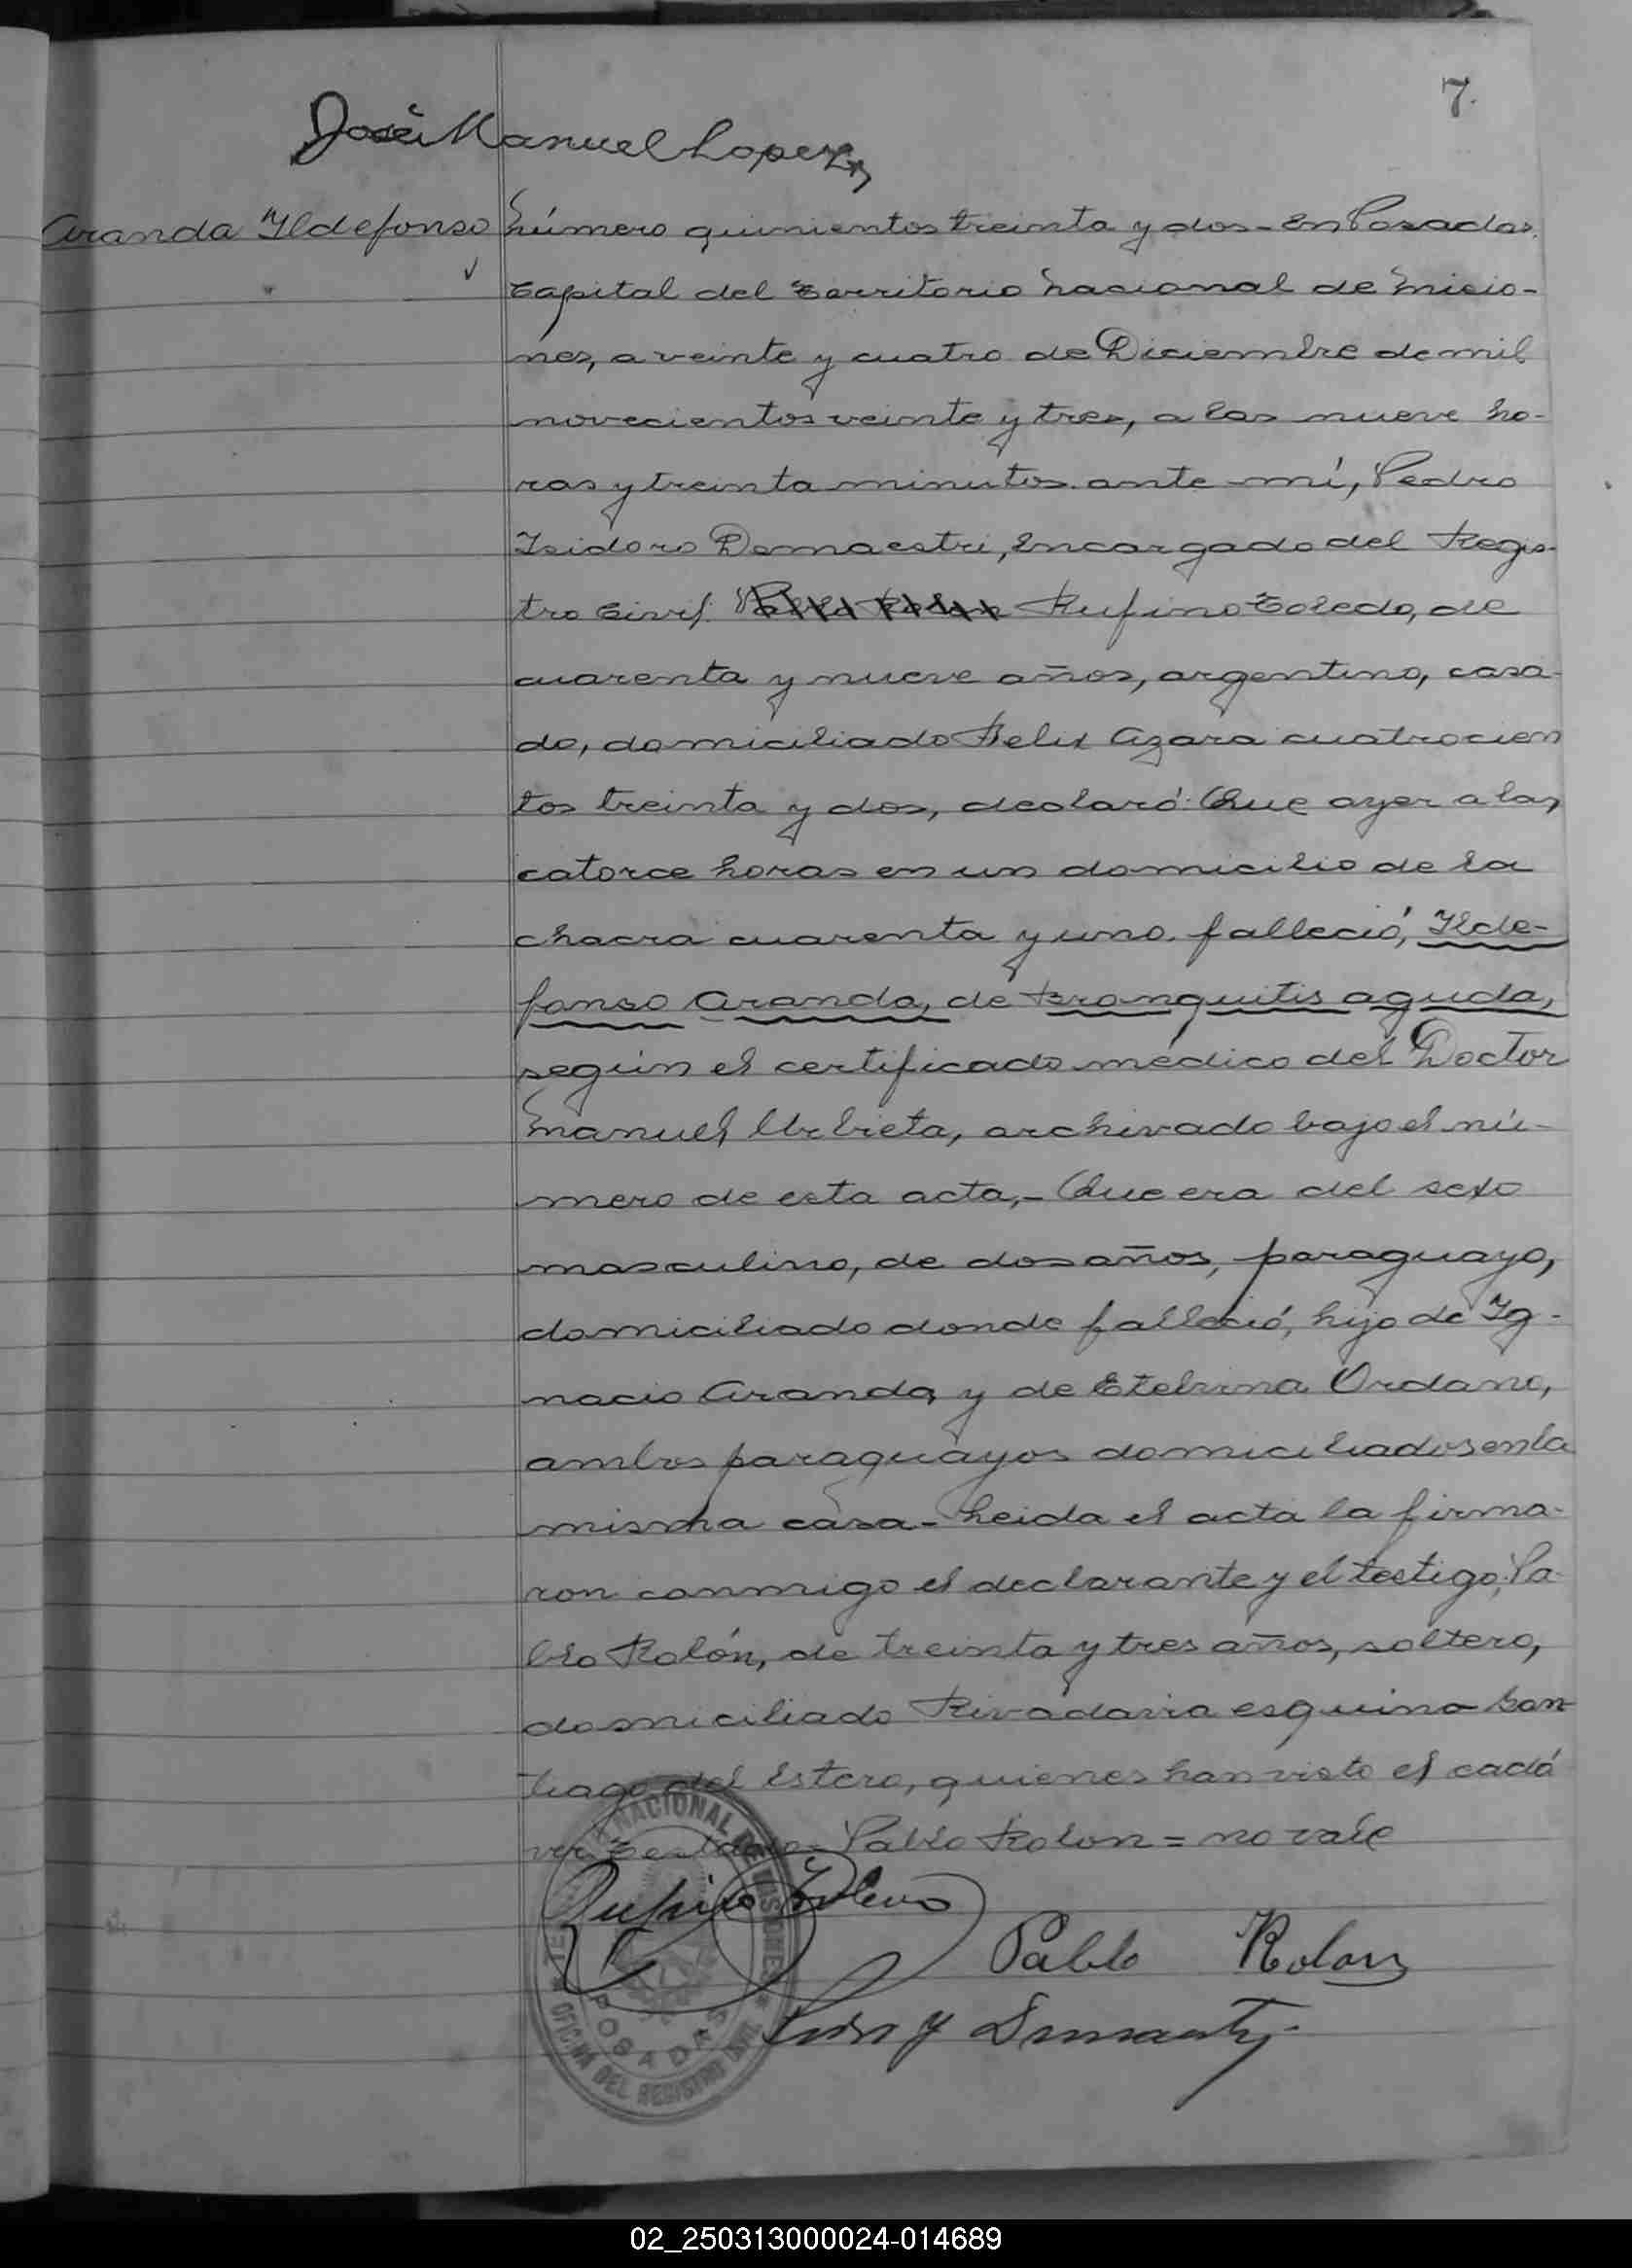 7.
José Manuel Lopez
Aranda Ildefonso
Número quinientos treinta y dos - En Posadas,
Capital del Territorio Nacional de Misio-
nes, a veinte y cuatro de Diciembre de mil
novecientos veinte y tres, a las nueve ho-
ras y treinta minutos. ante mí, Pedro
Isidoro Demaestri, Encargado del Regis-
tro Civil: Pablo Rolon Rufino Toledo, de
cuarenta y nueve años, argentino, casa-
do, domiciliado Felix Azara cuatrocien
tos treinta y dos, declaró: Que ayer a las
catorce horas en un domicilio de la
chacra cuarenta y uno. falleció, Ilde-
fonso Aranda, de Bronquitis aguda,
según el certificado médico del Doctor
Manuel Urbieta, archivado bajo el nú-
mero de esta acta,- Que era del sexo
masculino, de dos años, paraguayo,
domiciliado donde falleció, hijo de Ig-
nacio Aranda y de Etelvina Ordano,
ambos paraguayos domiciliados en la
misma casa - Leida el acta la firma-
ron conmigo el declarante y el testigo, Pa-
blo Rolón, de treinta y tres años, soltero,
domiciliado Rivadavia esquina San-
tiago del Estero, quienes han visto el cadá
ver. Testado = Pablo Rolon = no vale
Rufino Toledo
Pablo Rolon
Pedro I Demaestri
NACIONAL DE MISIONES
POSADAS
OFICINA DEL REGISTRO CIVIL
02_250313000024-014689